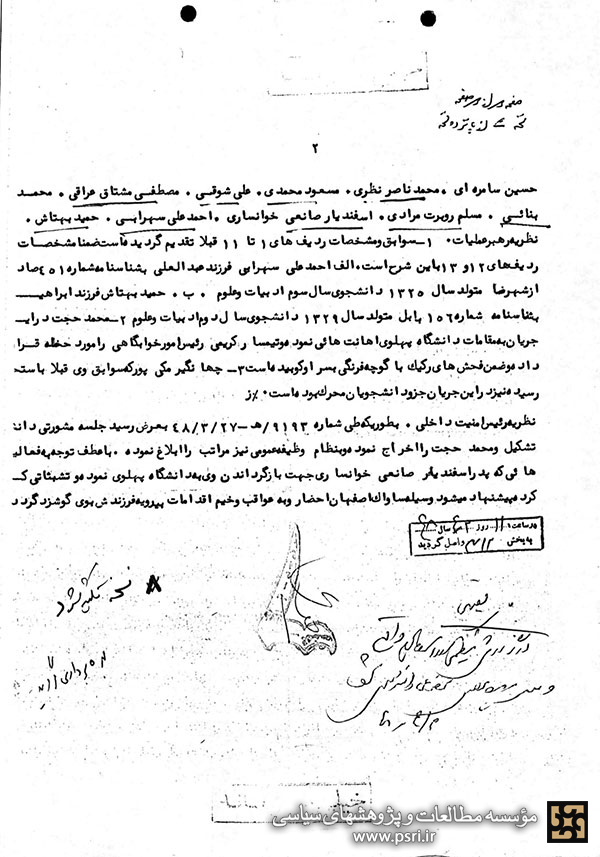 ۲
حسین سامره ای ۰ محمد ناصر نظری ۰ مسعود محمدی ۰ علی شوقی ۰ مصطفی مشتاق عراقی ۰ محمد
بنائی ۰ مسلم روبرت مرادی ۰ اسفندیار صانعی خوانساری ۰ احمد علی سهرابی ۰ حمید بهتاش ۰
نظریه رهبر عملیات ۰ ۱ـ سوابق و مشخصات ردیف های ۱ تا ۱۱ قبلا تقدیم گردیده است ضمنا مشخصات
ردیف های ۱۲ و ۱۳ باین شرح است ۰ الف احمد علی سهرابی فرزند عبد العلی بشناسنامه شماره ۴۵۱ صاد
از شهرضا متولد سال ۱۳۲۵ دانشجوی سال سوم ادبیات و علوم ۰ ب ۰ حمید بهتاش فرزند ابراهیـ
بشناسنامه شماره ۱۵۶ بابل متولد سال ۱۳۲۹ دانشجوی سال دوم ادبیات و علوم ۲ـ محمد حجت در ایـ
جریان به مقامات دانشگاه پهلوی اهانت هائی نموده و تیمسار کریمی رئیس امور خوابگاهی را مورد حمله قرا
داده و ضمن فحش های رکیك با گوجه فرنگی بسر او کوبیده است ۳ـ چها نگیر مکی پور که سوابق وی قبلا باستحـ
رسیده نیز در این جریان جزو دانشجویان محرك بوده است ۰
نظریه رئیس امنیت داخلی ۰ بطوریکه طی شماره ۹۱۹۳/هـ ـ ۴۸/۳/۲۷ بعرض رسید جلسه مشورتی دانـ
تشکیل و محمد حجت را اخراج نموده و بنظام وظیفه عمومی نیز مراتب را ابلاغ نموده ۰ با عطف توجه به فعالیـ
هائی که پدر اسفندیار صانعی خوانساری جهت بازگرداندن وی به دانشگاه پهلوی نموده و تشبثاتی کـ
کرده پیشنهاد میشود وسیله ساواك اصفهان احضار و به عواقب وخیم اقدامات بیرویه فرزندش بوی گوشزد گردد
در ساعت ۱۱ روز
به بخش ۳۱۲ واصل گردید
۸ نسخه تکثیر شود
مؤسسه مطالعات و پژوهشهای سیاسی
www.psri.ir